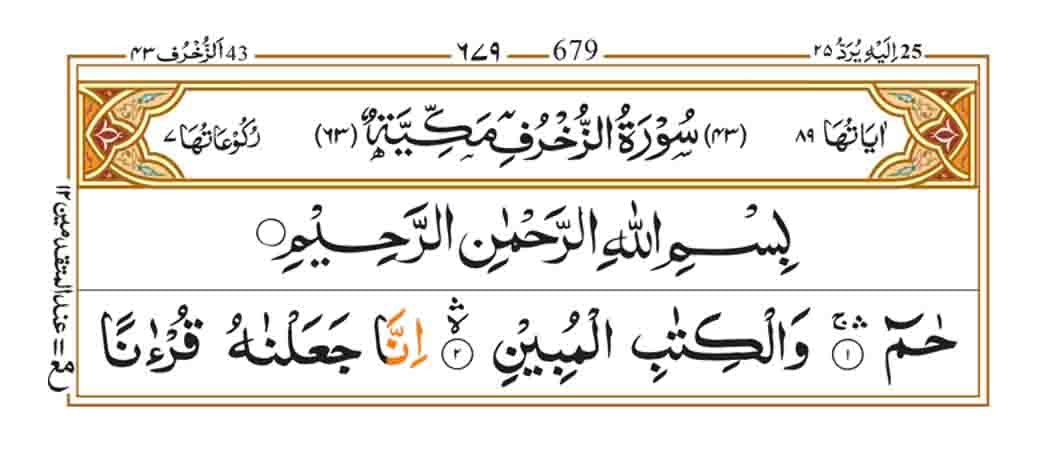 25 اِلَيْهِ يُرَدُّ ٢٥ 679 ٦٧٩ 43 اَلزُّخْرُف ٤٣
اٰيَاتُهَا ٨٩ (٤٣) سُوْرَةُ الزُّخْرُفِ مَكِّيَّةٌ (٦٣) رُكُوْعَاتُهَا ٧
بِسْمِ اللّٰهِ الرَّحْمٰنِ الرَّحِيْمِ
حٰمٓ ۚۛ ١ وَالْكِتٰبِ الْمُبِيْنِ ۙۛ ٢ اِنَّا جَعَلْنٰهُ قُرْءٰنًا
مع = عند المتقدمين ١٢